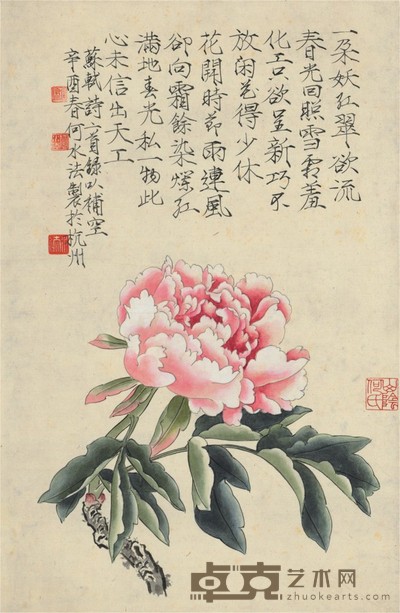 一朵妖红翠欲流
春光回照雪霜羞
化工只欲呈新巧不
放闲花得少休
花開時節雨連風
卻向霜餘染爛紅
滿地春光私一物此
心未信出天工
蘇軾詩二首錄以補空
辛酉春何水法製於杭州
山陰何氏
卓克艺术网
zhuokearts.com